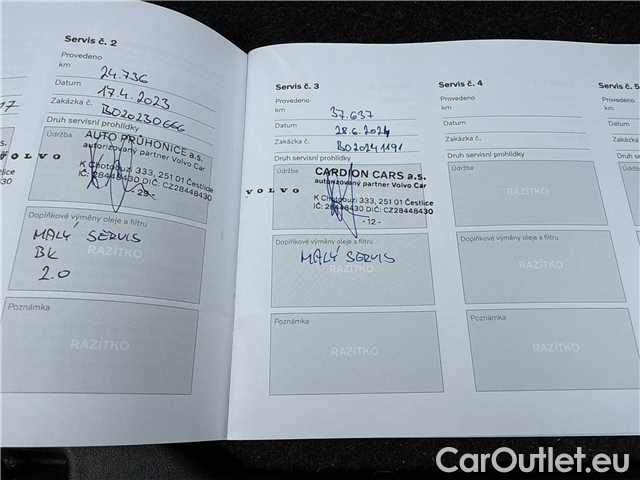 Servis č. 2
Provedeno
km 24.736
Datum 17.4.2023
Zakázka č. BO20230666
Druh servisní prohlídky
Údržba
AUTO PRŮHONICE a.s.
autorizovaný partner Volvo Car
VOLVO
K Chotobuzi 333, 251 01 Čestlice
IČ: 28448430 DIČ: CZ28448430
- 29 -
Doplňkové výměny oleje a filtru
MALÝ SERVIS
BK
2.0
RAZÍTKO
Poznámka
RAZÍTKO
Servis č. 3
Provedeno
km 37.637
Datum 28.6.2024
Zakázka č. BO20241191
Druh servisní prohlídky
Údržba
CARDION CARS a.s.
autorizovaný partner Volvo Car
VOLVO
K Chotobuzi 333, 251 01 Čestlice
IČ: 28448430 DIČ: CZ28448430
- 12 -
Doplňkové výměny oleje a filtru
MALÝ SERVIS
RAZÍTKO
Poznámka
RAZÍTKO
Servis č. 4
Provedeno
km
Datum
Zakázka č.
Druh servisní prohlídky
Údržba
RAZÍTKO
Doplňkové výměny oleje a filtru
RAZÍTKO
Poznámka
RAZÍTKO
Servis č. 5
Provedeno
km
Datum
Zakázka č.
Druh servisní
Údržba
Doplňkové
Poznámka
CarOutlet.eu